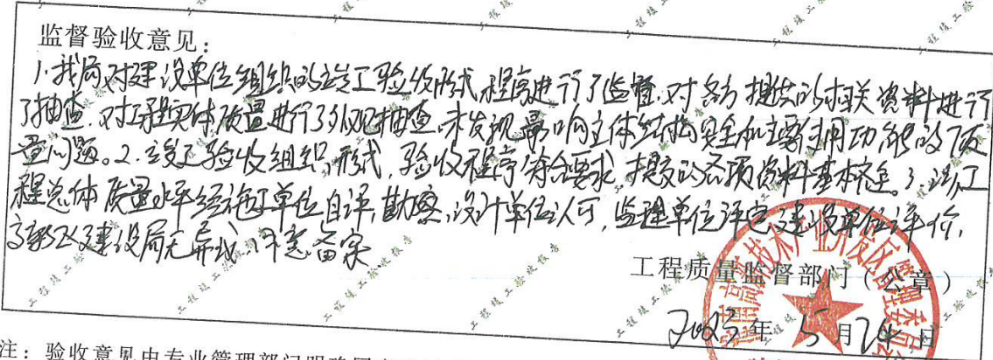 监督验收意见：
1.我局对建设单位组织的竣工验收形式、程序进行了监督,对各方提供的相关资料进行
了抽查,对工程实体质量进行了外观抽查,未发现影响主体结构安全和主要使用功能的质
量问题。2.竣工验收组织形式、验收程序符合要求,提交的各项资料基本齐全。3.该工
程总体质量水平经施工单位自评,勘察、设计单位认可,监理单位评定,建设单位评价,
高新区建设局无异议,同意备案
工程质量监督部门（公章）
2023年5月24日
高新技术产业开发区管理委员会
注：验收意见由专业管理部门明确
工程竣工验收报告